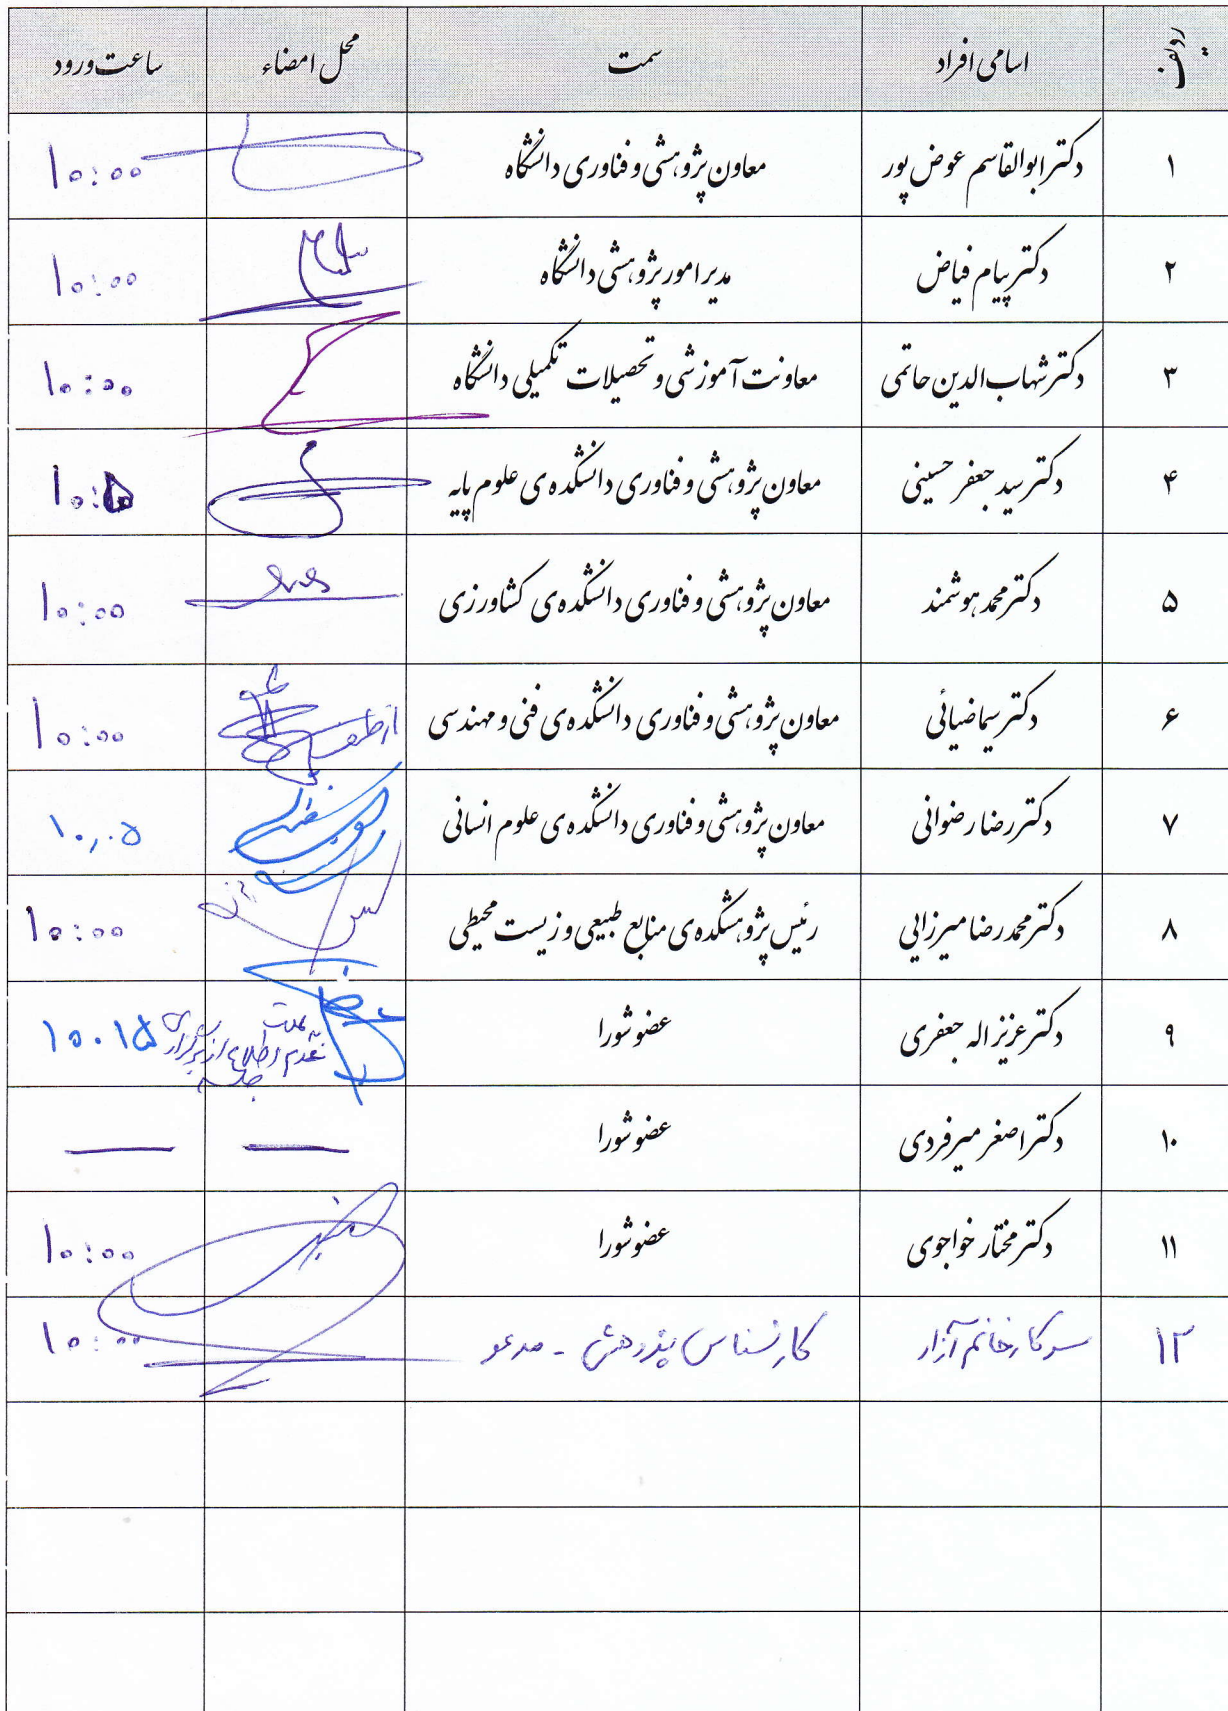 ردیف اسامی افراد سمت محل امضاء ساعت ورود
۱ دکتر ابوالقاسم عوض پور معاون پژوهشی و فناوری دانشگاه ۱۰:۰۰
۲ دکتر پیام فیاض مدیر امور پژوهشی دانشگاه ۱۰:۰۰
۳ دکتر شهاب الدین حاتمی معاونت آموزشی و تحصیلات تکمیلی دانشگاه ۱۰:۰۰
۴ دکتر سید جعفر حسینی معاون پژوهشی و فناوری دانشکده ی علوم پایه
۵ دکتر محمد هوشمند معاون پژوهشی و فناوری دانشکده ی کشاورزی ۱۰:۰۰
۶ دکتر سیما ضیائی معاون پژوهشی و فناوری دانشکده ی فنی و مهندسی از طرف ۱۰:۰۰
۷ دکتر رضا رضوانی معاون پژوهشی و فناوری دانشکده ی علوم انسانی ۱۰:۰۵
۸ دکتر محمدرضا میرزایی رئیس پژوهشکده ی منابع طبیعی و زیست محیطی ۱۰:۰۰
۹ دکتر عزیز اله جعفری عضو شورا ۱۰.۱۵
به علت
عدم اطلاع از برگزاری
جلسه
۱۰ دکتر اصغر میرفردی عضو شورا — —
۱۱ دکتر مختار خواجوی عضو شورا ۱۰:۰۰
۱۲ سرکار خانم آزاد کارشناس پژوهش - مدعو ۱۰:۰۰